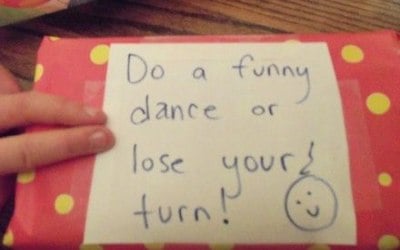 Do a funny
dance or
lose your
turn!